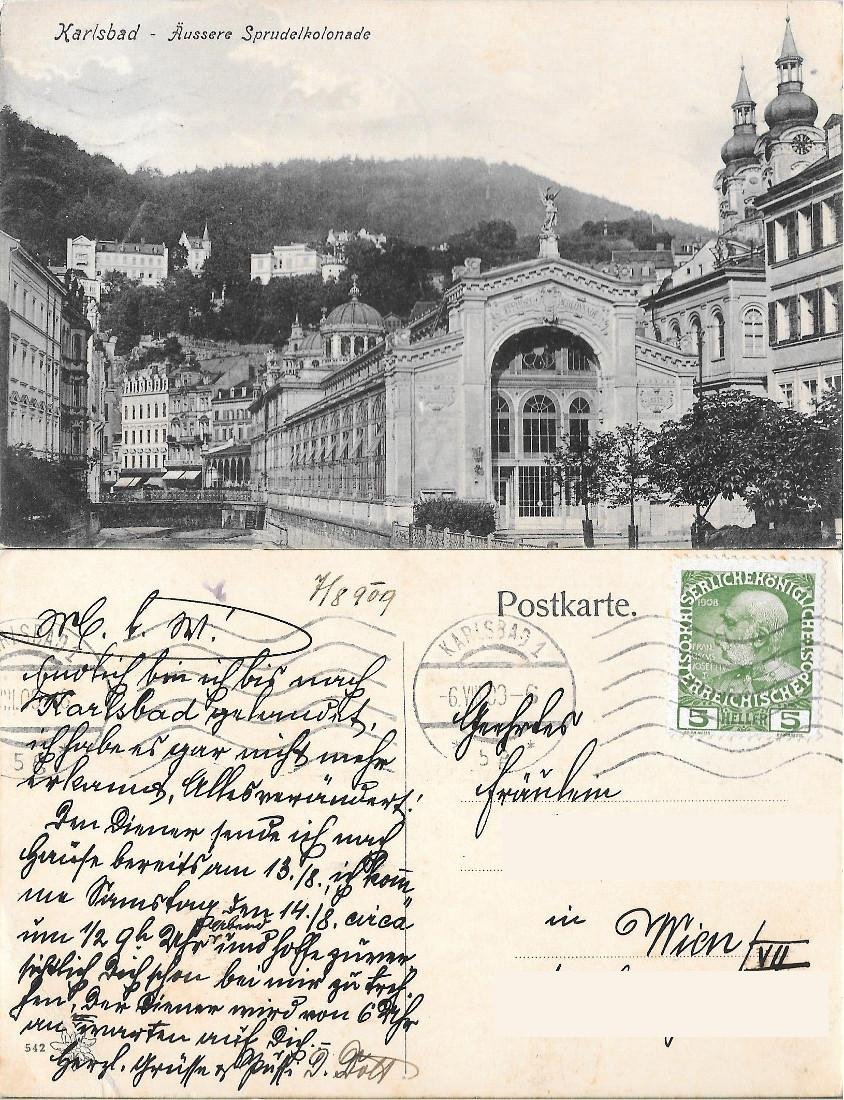 Karlsbad - Äussere Sprudelkolonade
7/8 909
Postkarte.
M. l. W!
Endlich bin ich bis nach
Karlsbad gelandet,
ich habe es gar nicht mehr
erkannt, Alles verändert!
Den Diener sende ich nach
Hause bereits am 13./8., ich kom̄
me Samstag den 14./8. circa
um 1/2 9h Uhr abend und hoffe zuver
sichtlich Dich schon bei mir zu tref
fen, der Diener wird von 6 Uhr
an warten auf Dich.
Herzl. Grüsse & Küsse
542
KARLSBAD 1
-6.VIII.09-6
* 5 e *
KAISERLICHEKÖNIGLICHE
ÖSTERREICHISCHEPOST
1908
FRANZ
JOSEF I
5 HELLER 5
Geehrtes
Fräulein
in Wien
VII